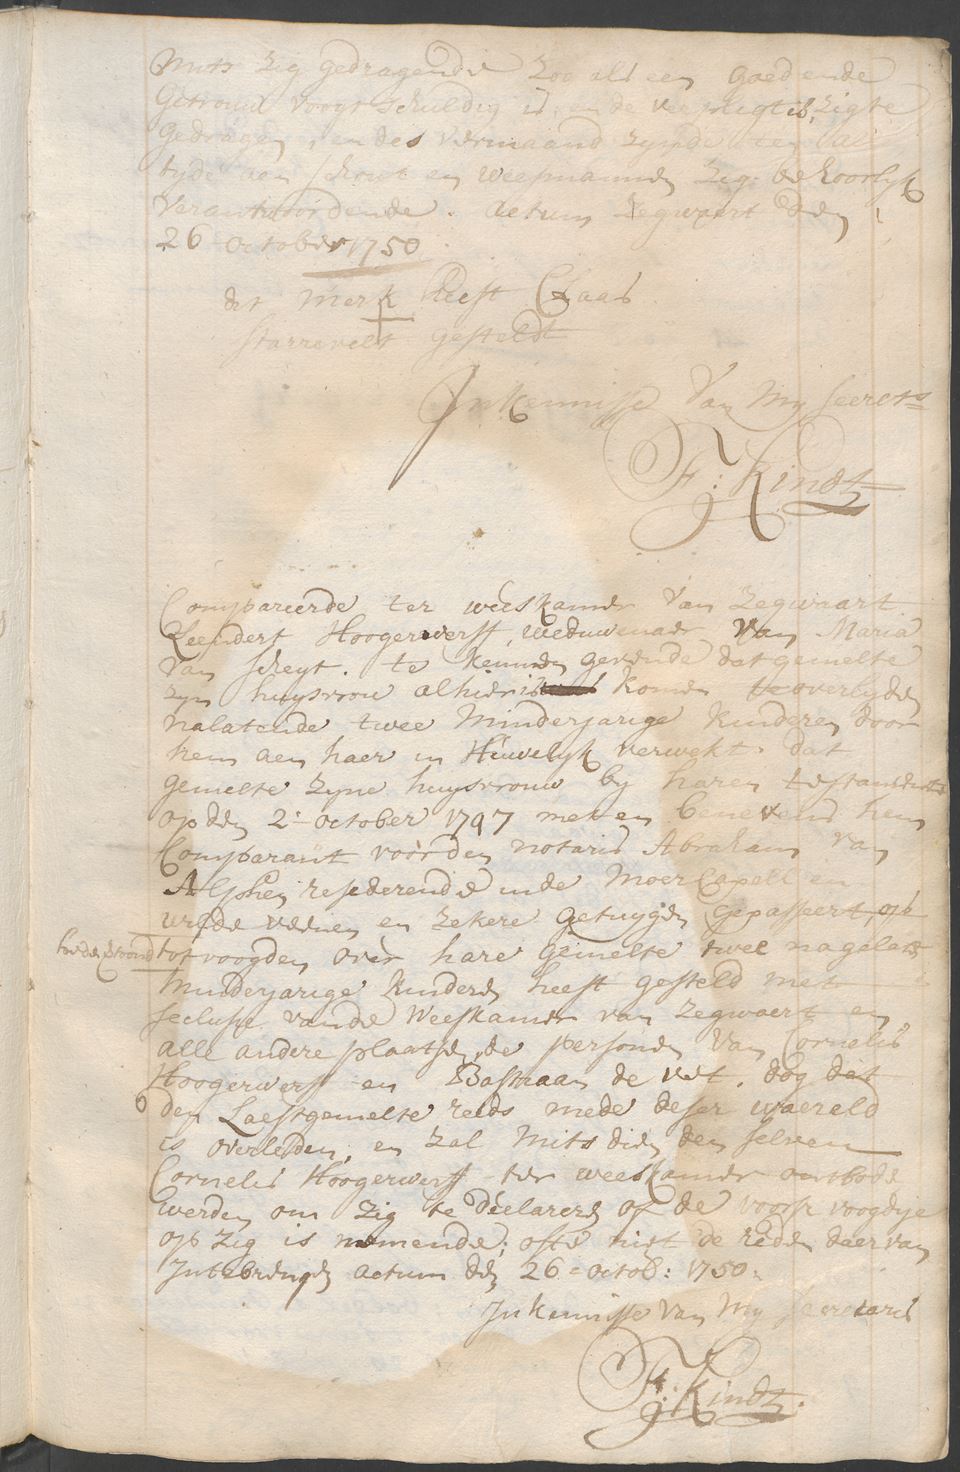 mits zig gedragende zoo als een goed ende
getrouw voogt schuldig is, en de verpligt is, zig te
gedragen, en des vermaand zynde ten al
tyde aen schout en weesmannen zig behoorlyk
verantwoordende. actum Zegwaert den
26 october 1750
dit merk heeft Claas
Starrevelt gesteldt
In kennisse van my secrets
F: Kindt
Compareerde ter weeskamer van Zegwaart
Leendert Hoogerwerff, weduwenaer van Maria
van Scheyt. te kennen gevende dat gemelte
zyn huysvrou alhier is komen te overlyden
nalatende twee minderjarige kinderen door
hem aen haer in Huwelyk verwekt. dat
gemelte zyne huysvrouw by haren testamente
op den 2: october 1747 met en benevens hem
Comparant voor den notaris Abraham van
Alphen resederende in de Moercapell en
wilde veenen en zekere getuygen gepasseert op
tot voogden over hare gemelte twee nagelate
minderjarige kinderen heeft gesteld met
seclusie vande Weeskamer van Zegwaert en
alle andere plaatsen, de personen van Cornelis
Hoogerwerf en Bastiaan de Vet, dog dat
den Laestgemelte reeds mede deser waereld
is overleden, en zal mits dien den selven
Cornelis Hoogerwerff ter weeskamer ontbode
werden om zig te declareren of de voorsz voogdye
op zig is nemende; ofte niet de reden daer van
Intebrengen actum den 26 = octob: 1750:
In kennisse van my secretaris
F: Kindt.